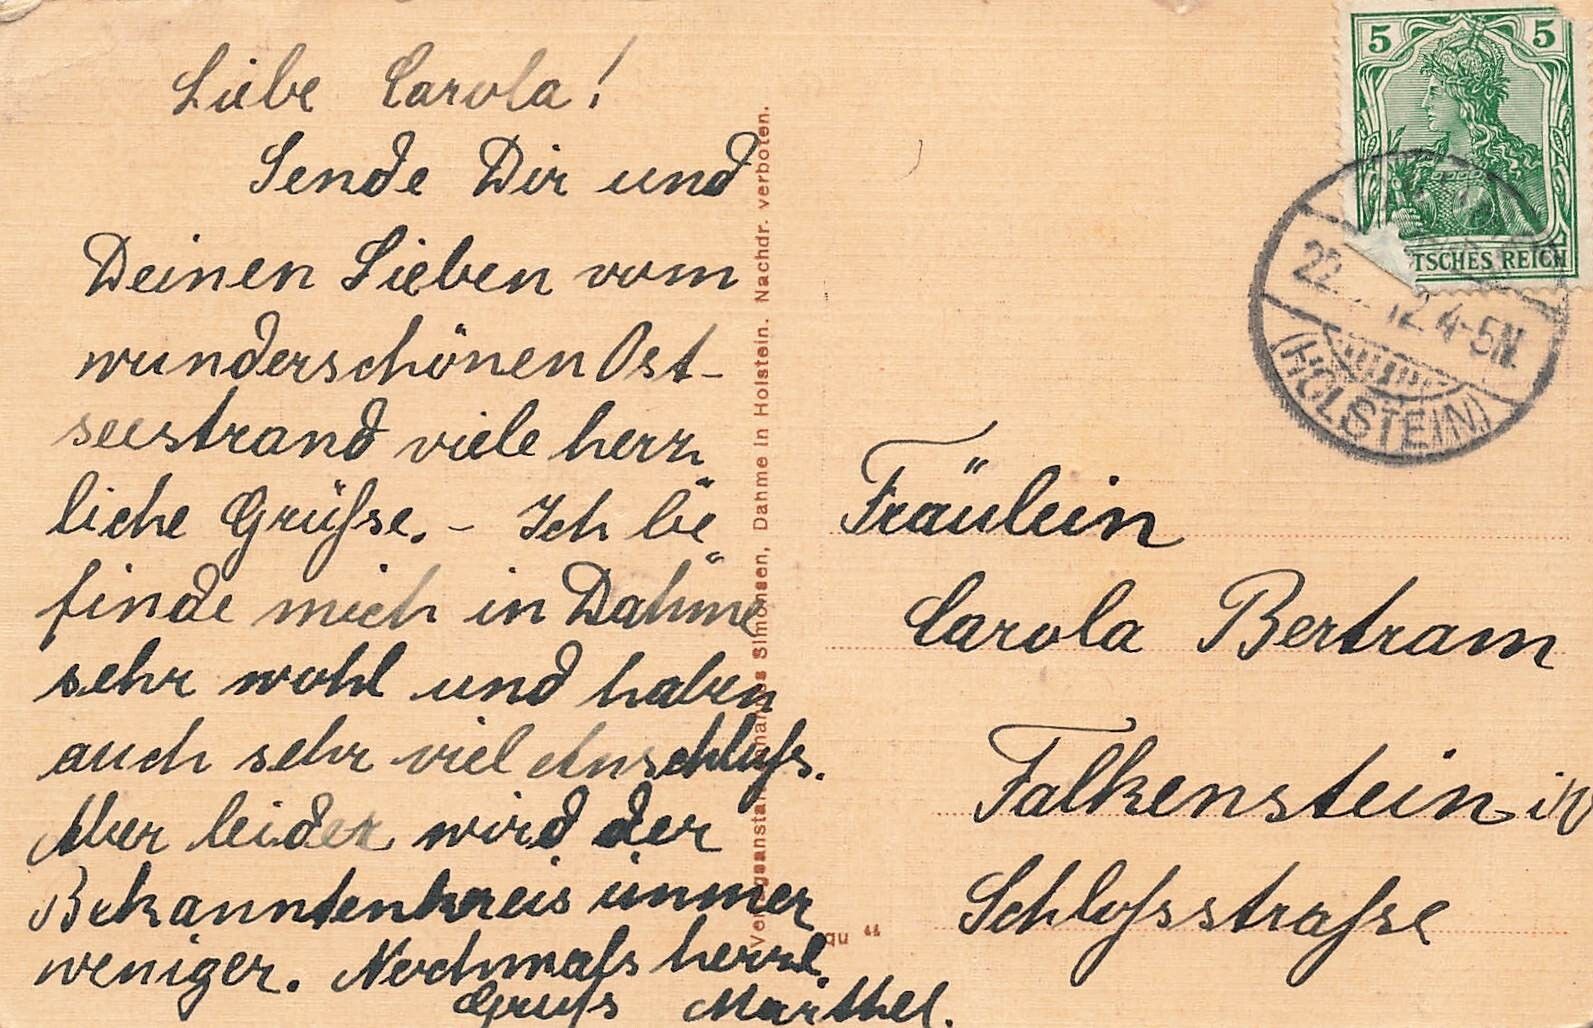 Liebe Carola!
Sende Dir und
Deinen Lieben vom
wunderschönen Ost-
seestrand viele herz
liche Grüße. – Ich be
finde mich in Dahme
sehr wohl und haben
auch sehr viel Anschluß.
Aber leider wird der
Bekanntenkreis immer
weniger. Nochmals herzl.
Gruß Marthel.
Nachdr. verboten.
Simonsen, Dahme in Holstein.
5 5
TSCHES REICH
22. 12. 4-5N.
(HOLSTEIN)
Fräulein
Carola Bertram
Falkenstein i/V
Schloßstraße